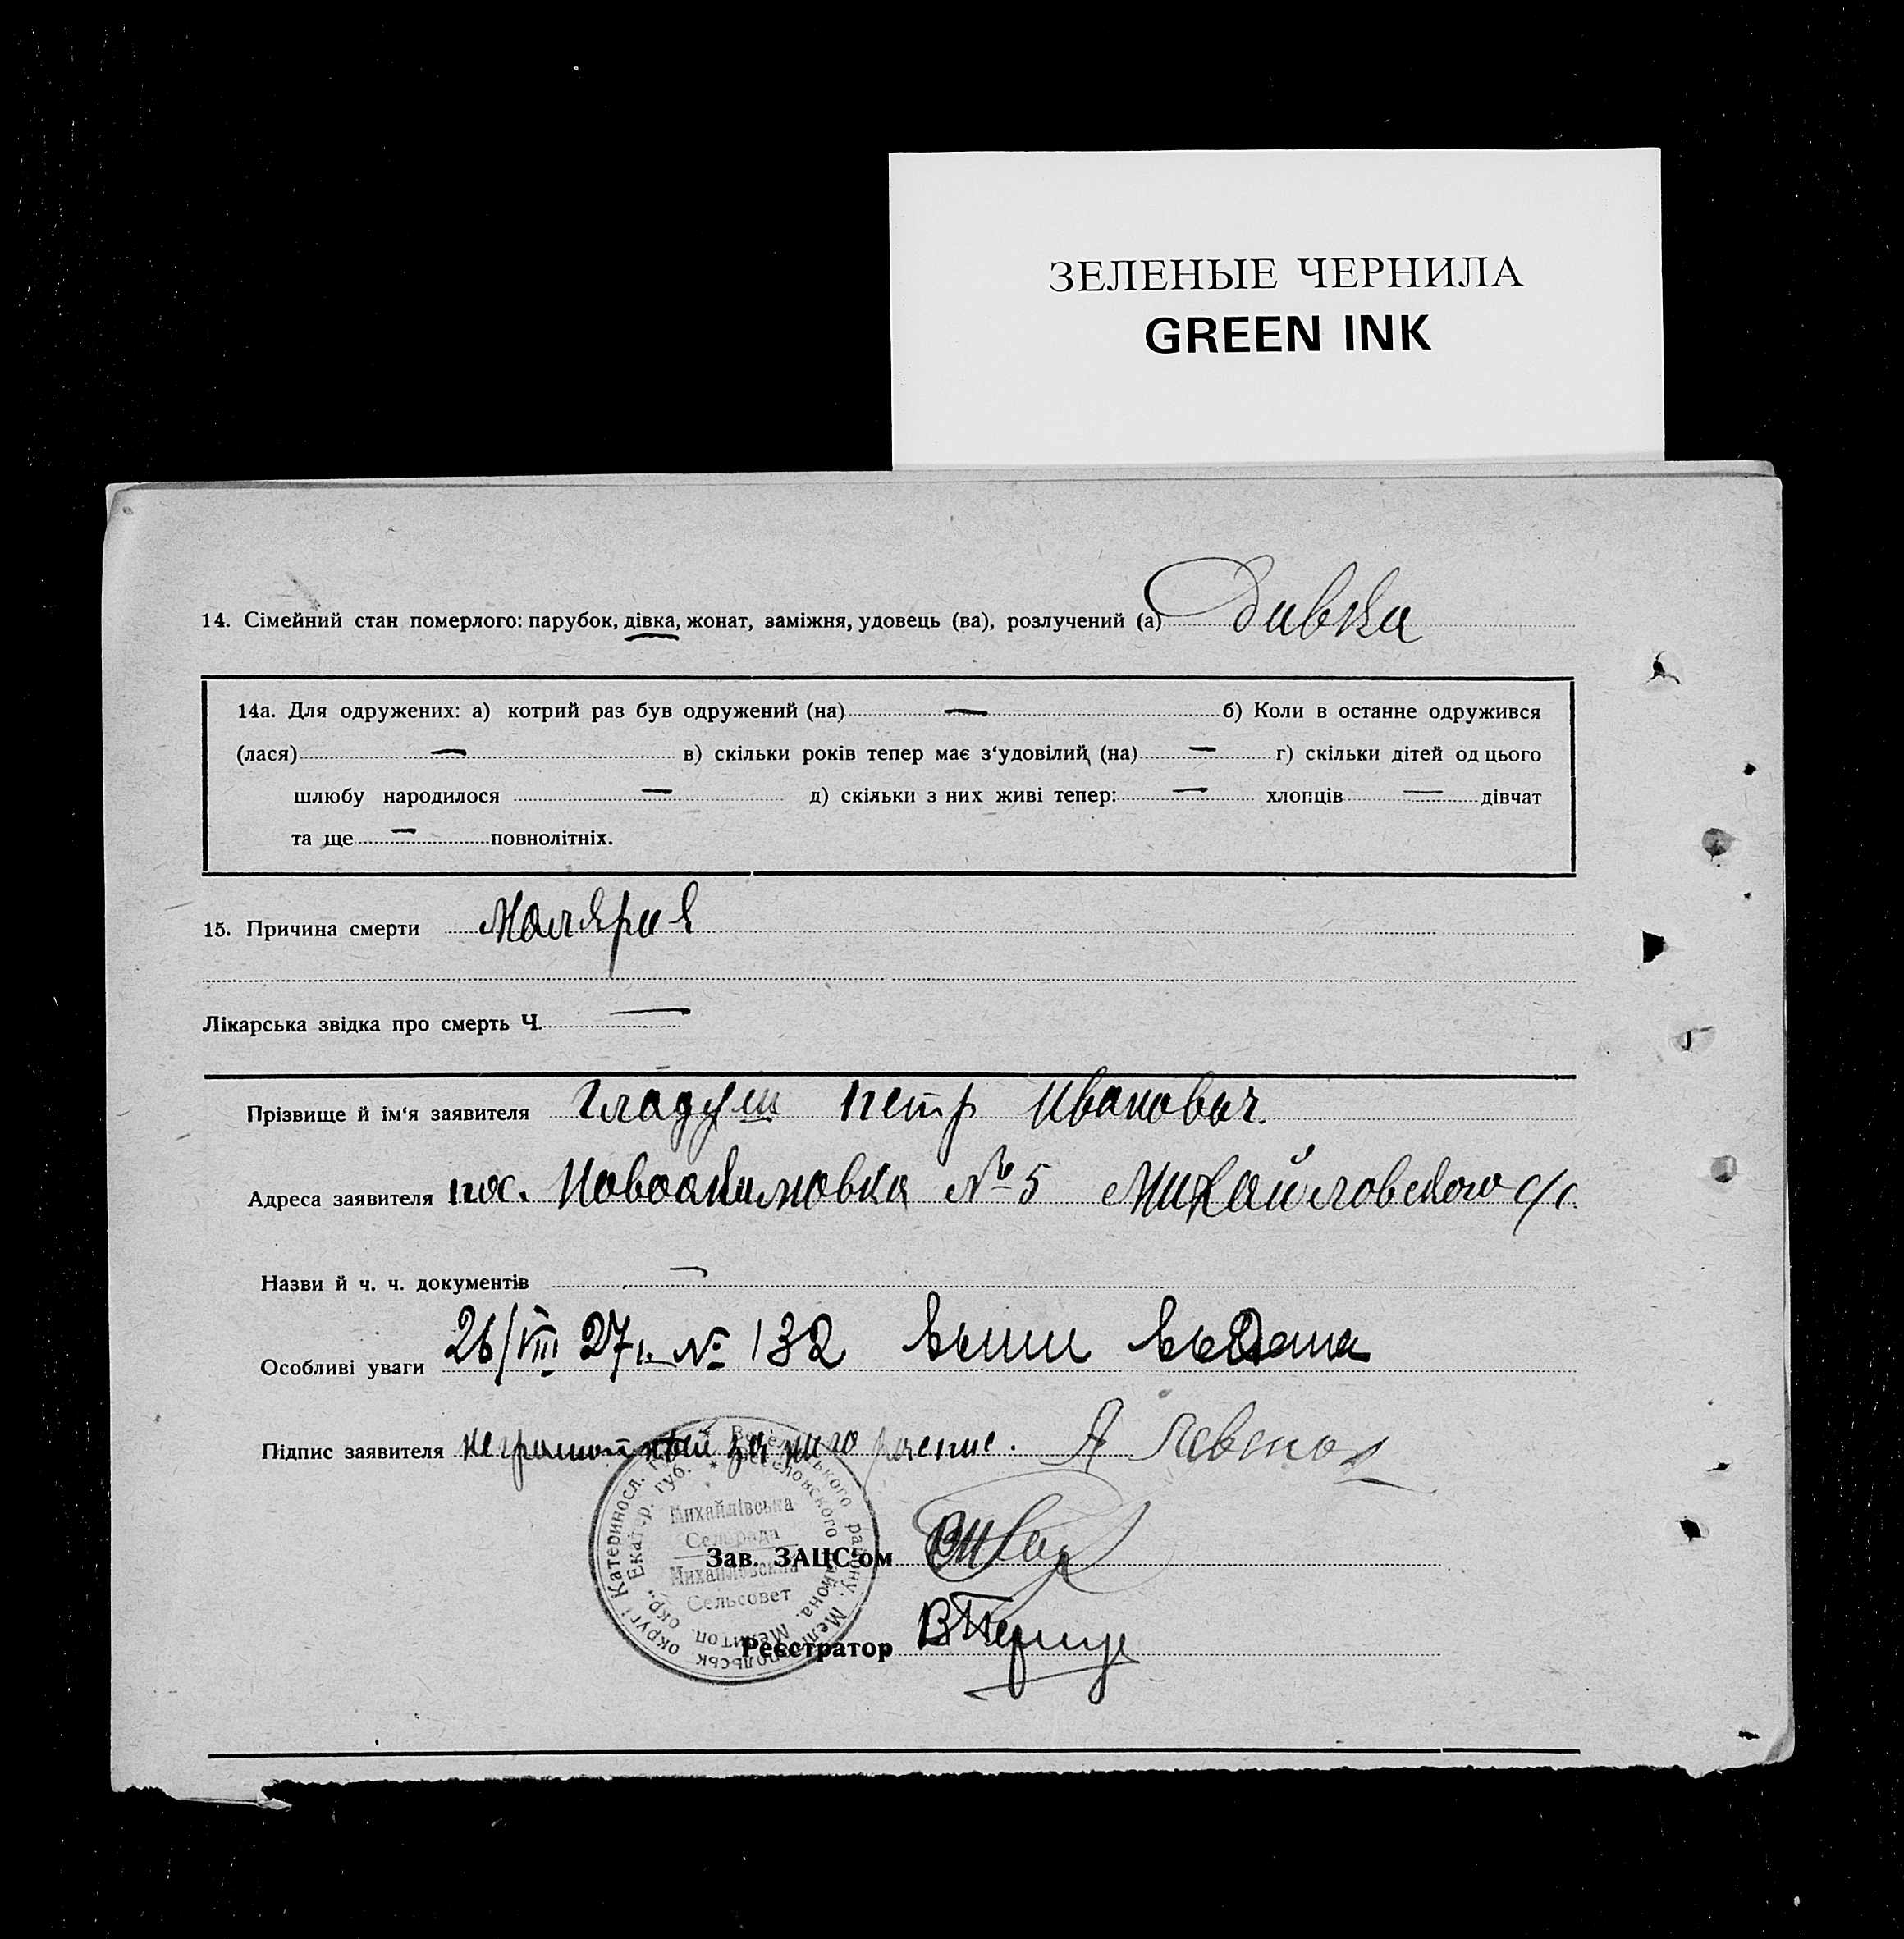 ЗЕЛЕНЫЕ ЧЕРНИЛА
GREEN INK
14. Сімейний стан померлого: парубок, дівка, жонат, заміжня, удовець (ва), розлучений (а) Дивка
14а. Для одружених: а) котрий раз був одружений (на) — б) Коли в останнє одружився
(лася) — в) скільки років тепер має з'удовілий (на) — г) скільки дітей од цього
шлюбу народилося — д) скільки з них живі тепер: — хлопців — дівчат
та ще — повнолітніх.
15. Причина смерти Молярия
Лікарська звідка про смерть Ч. —
Прізвище й ім'я заявителя Гладуш Петр Иванович.
Адреса заявителя пос. Новоакимовка № 5 Михайловского с/с.
Назви й ч. ч. документів —
Особливі уваги 26/VIII 27г. № 132 выпи выдана
Підпис заявителя неграмотный за него распис. А
Михайлівська
Сельрада
Зав. ЗАЦС'ом
Михайловский
Сельсовет
Реєстратор
округ. Катеринослав.
Веселовского района. Мелитоп. окр. Екатер. губ.